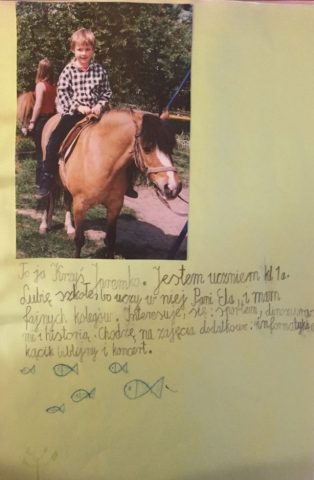 To ja Krzyś Jaremko. Jestem uczniem kl 1a.
Lubię szkołę, bo uczy w niej Pani Ela, i mam
fajnych kolegów. Interesuję się: sportem, dinozaura-
mi i historią. Chodzę na zajęcia dodatkowe: informatykę
kącik biblijny i koncert.